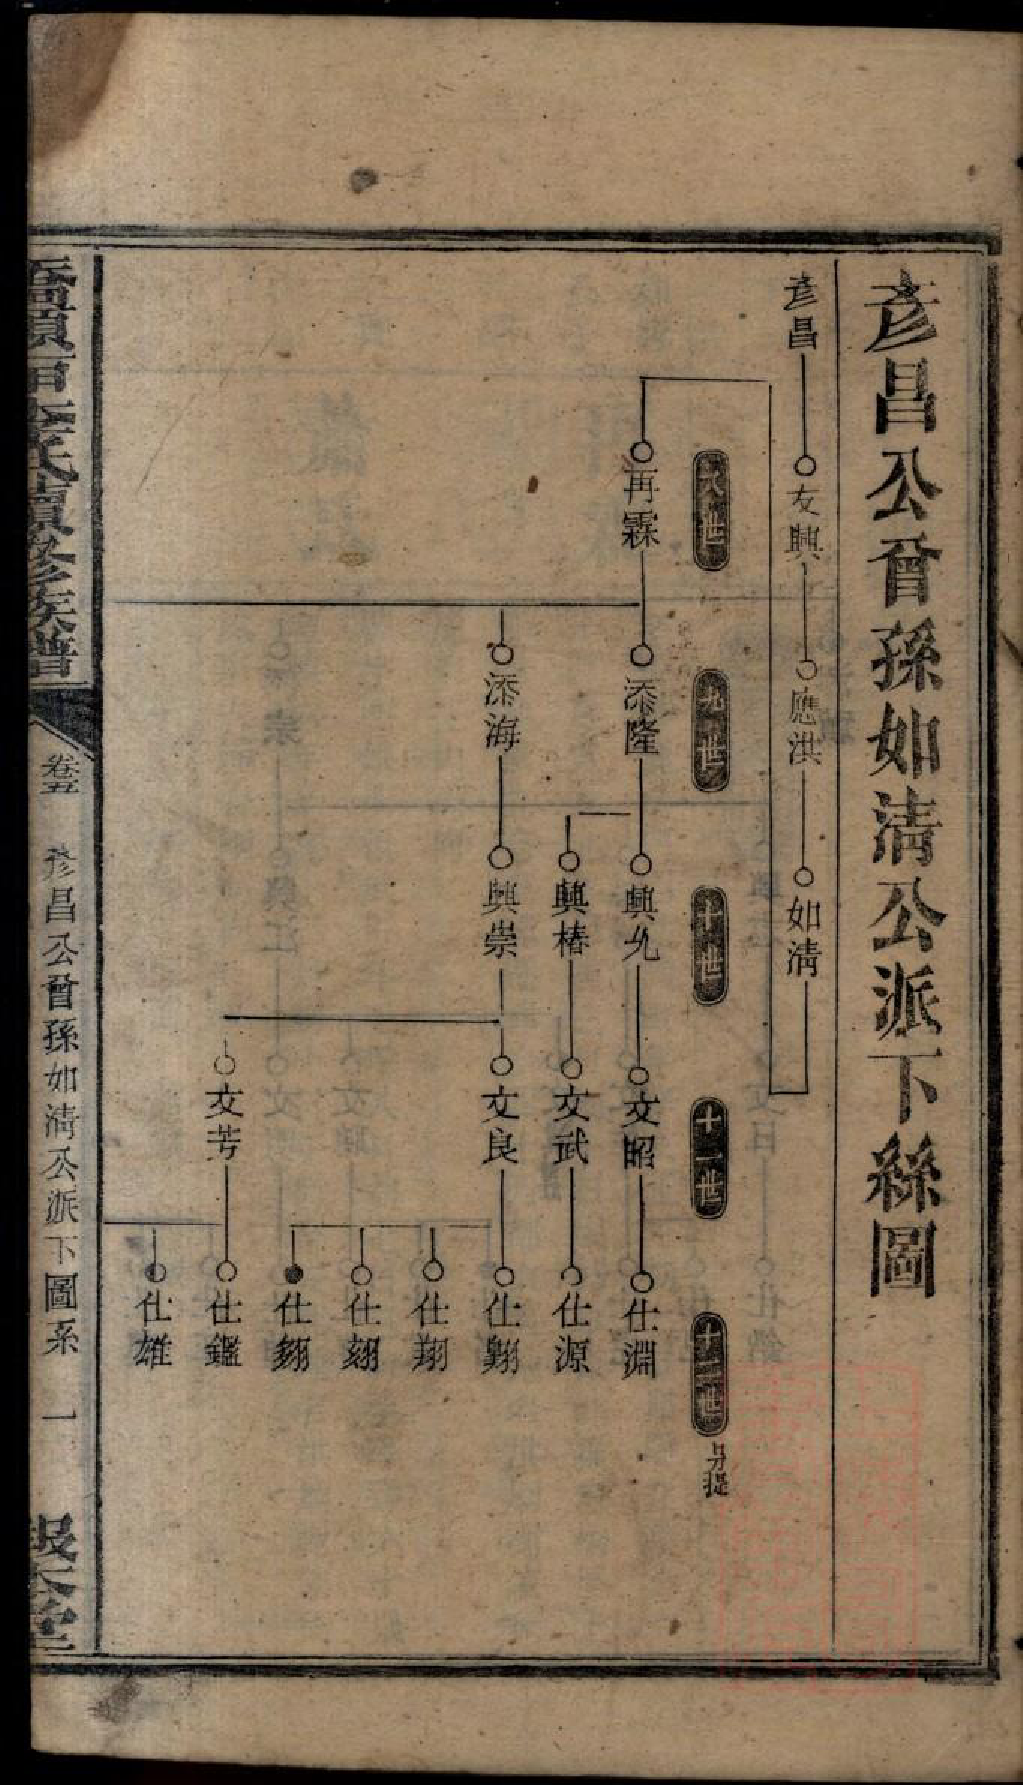 彥昌公曾孫如清公派下絲圖
彥昌
友興
應洪
如清
八世
九世
十世
十一世
十二世
另提
再霖
添隆
興允
文昭
仕淵
興椿
文武
仕源
添海
興崇
文良
仕翔
仕翔
文芳
仕鑑
仕雄
李氏續修族譜
卷五
彥昌公曾孫如清公派下圖系
一
報本堂